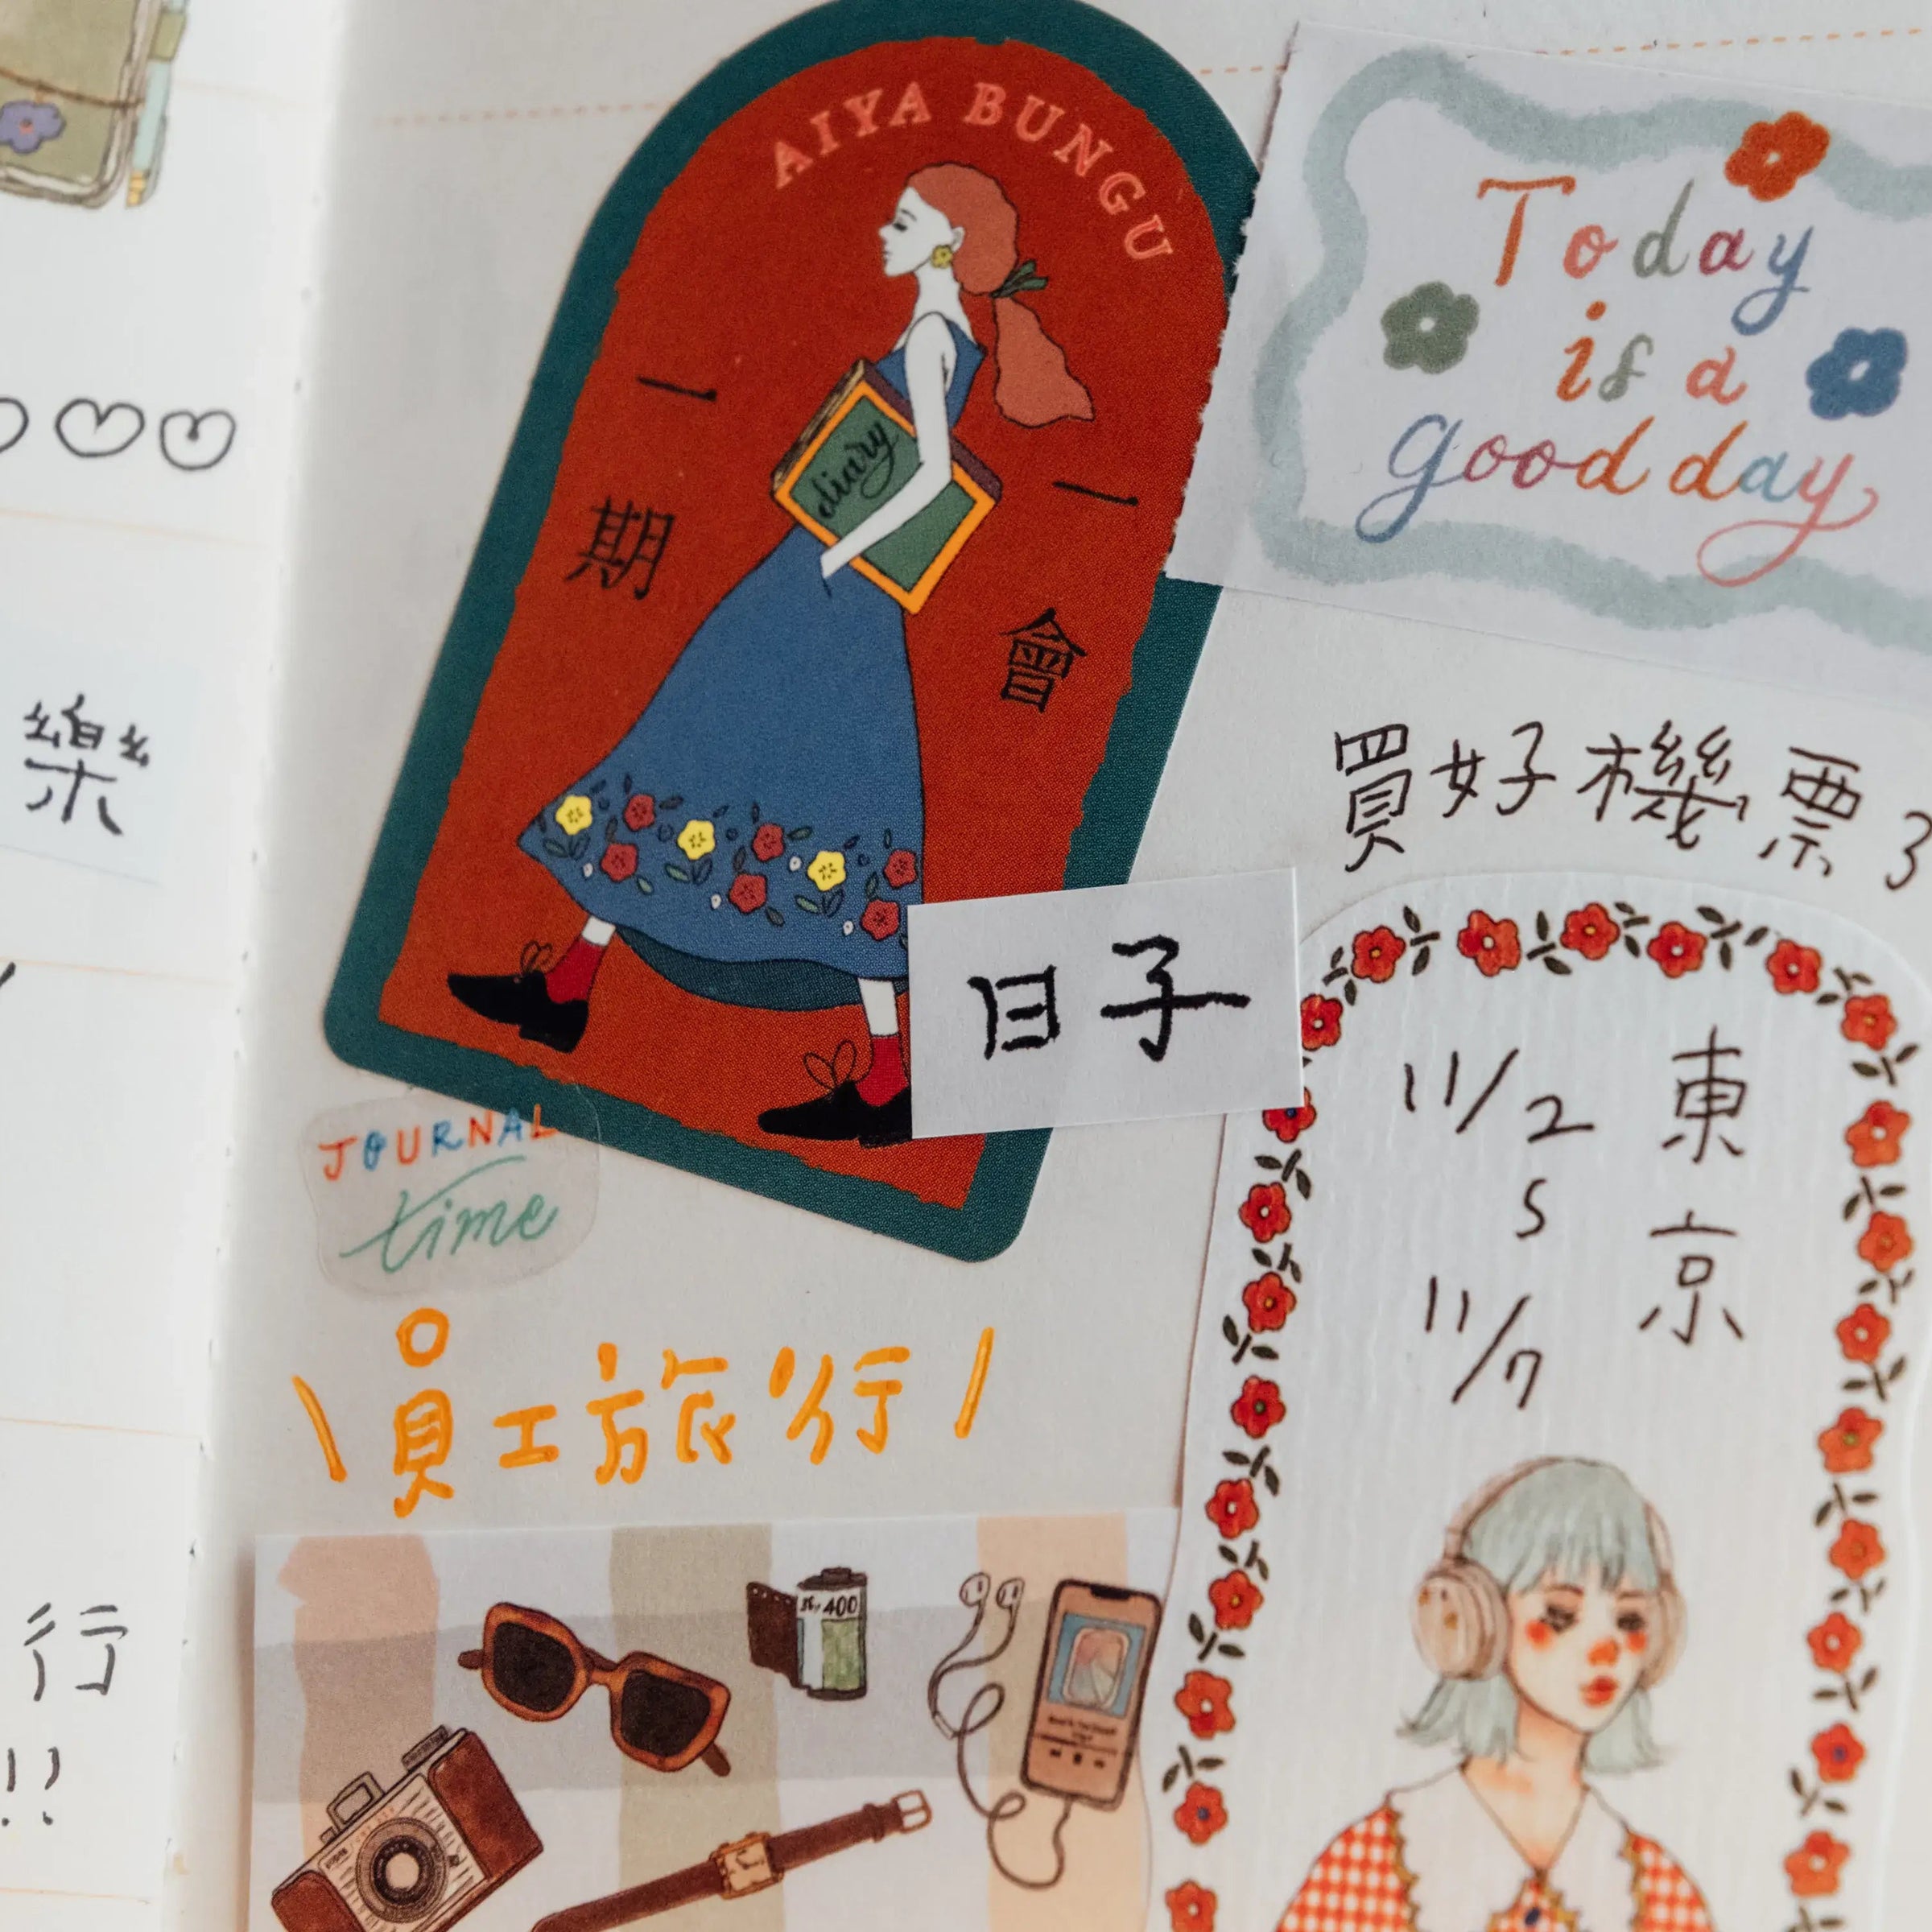 樂
行
!!
AIYA BUNGU
一期
一會
diary
Today
is a
good day
買好機票了
日子
東京
11/2
S
11/7
JOURNAL
time
\員工旅行/
400